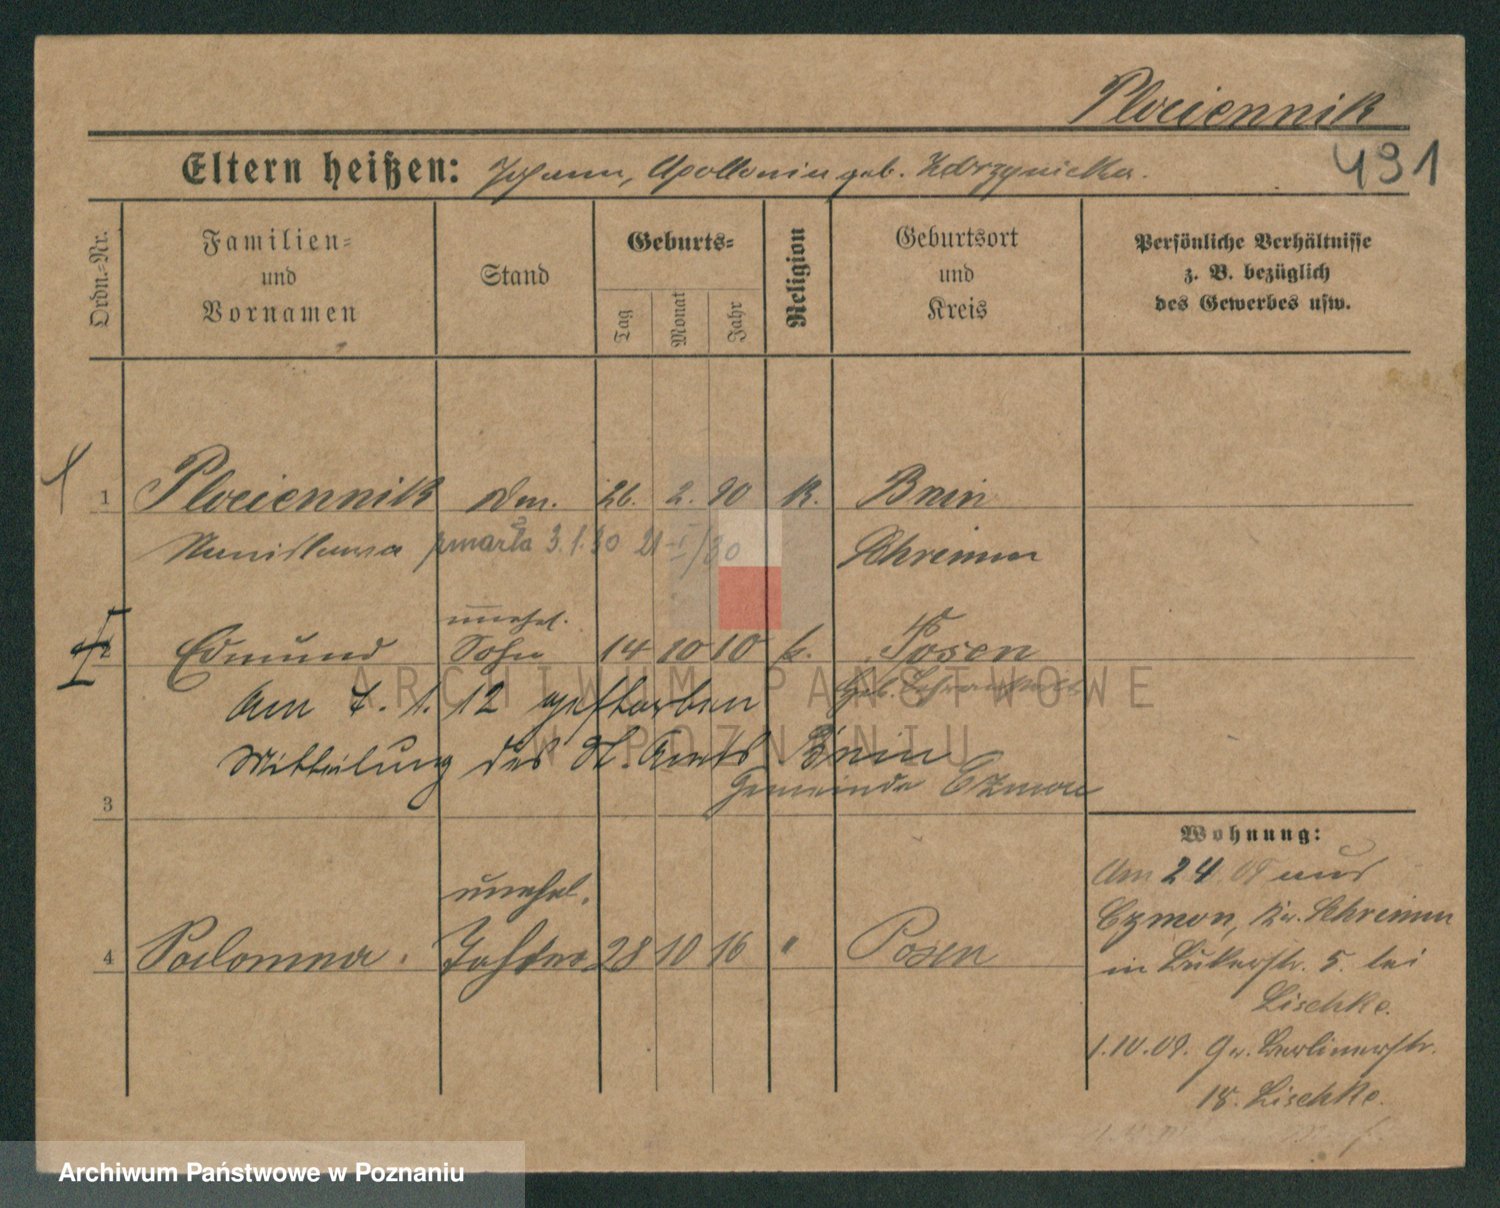 Plociennik
491
Eltern heißen: Johann, Apollonia geb.
Ordn.-Nr.
Familien-
und
Vornamen
Stand
Geburts-
Tag
Monat
Jahr
Religion
Geburtsort
und
Kreis
Persönliche Verhältnisse
z. B. bezüglich
des Gewerbes usw.
1 Plociennik 26. 2. 90 K. Bnin
Stanislawa zmarła 3.1.30 Schrimm
unehel.
2 Edmund Sohn 14 10 10 k. Posen
Am 7. 1. 12 gestorben
Mitteilung des St. Amts Bnin
Gemeinde Czmon
3
Wohnung:
Am 24 09 aus
Czmon, Kr. Schrimm
in 5. bei
Lischke.
1.10.09. Gr. Berlinerstr.
18. Lischke.
unehel.
4 Salomea. Tochter 28 10 16 " Posen
ARCHIWUM PAŃSTWOWE
W POZNANIU
Archiwum Państwowe w Poznaniu